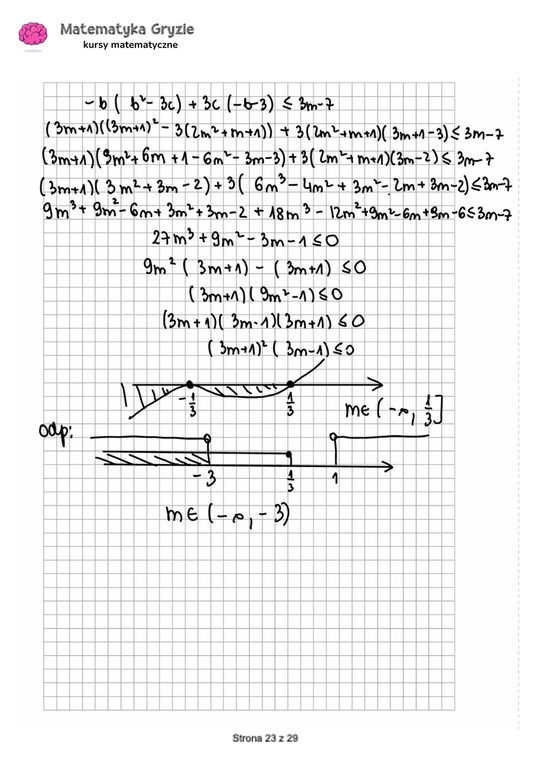 Matematyka Gryzie
kursy matematyczne
-b ( b² - 3c) + 3c (-b-3) ≤ 3m-7
(3m+1)((3m+1)² - 3(2m²+m+1)) + 3(2m²+m+1)( 3m+1-3) ≤ 3m-7
(3m+1)(9m²+6m+1-6m²-3m-3)+3(2m²+m+1)(3m-2) ≤ 3m-7
(3m+1)( 3m²+3m-2)+3( 6m³-4m²+3m²-2m+3m-2) ≤ 3m-7
9m³+9m²-6m+3m²+3m-2+18m³-12m²+9m²-6m+9m-6 ≤ 3m-7
27m³+9m²-3m-1 ≤ 0
9m² ( 3m+1) - (3m+1) ≤ 0
(3m+1)( 9m²-1) ≤ 0
(3m+1)( 3m-1)(3m+1) ≤ 0
( 3m+1)² ( 3m-1) ≤ 0
-1/3 1/3 m∈ (-∞, 1/3]
odp:
-3 1/3 1
m∈ (-∞, -3)
Strona 23 z 29